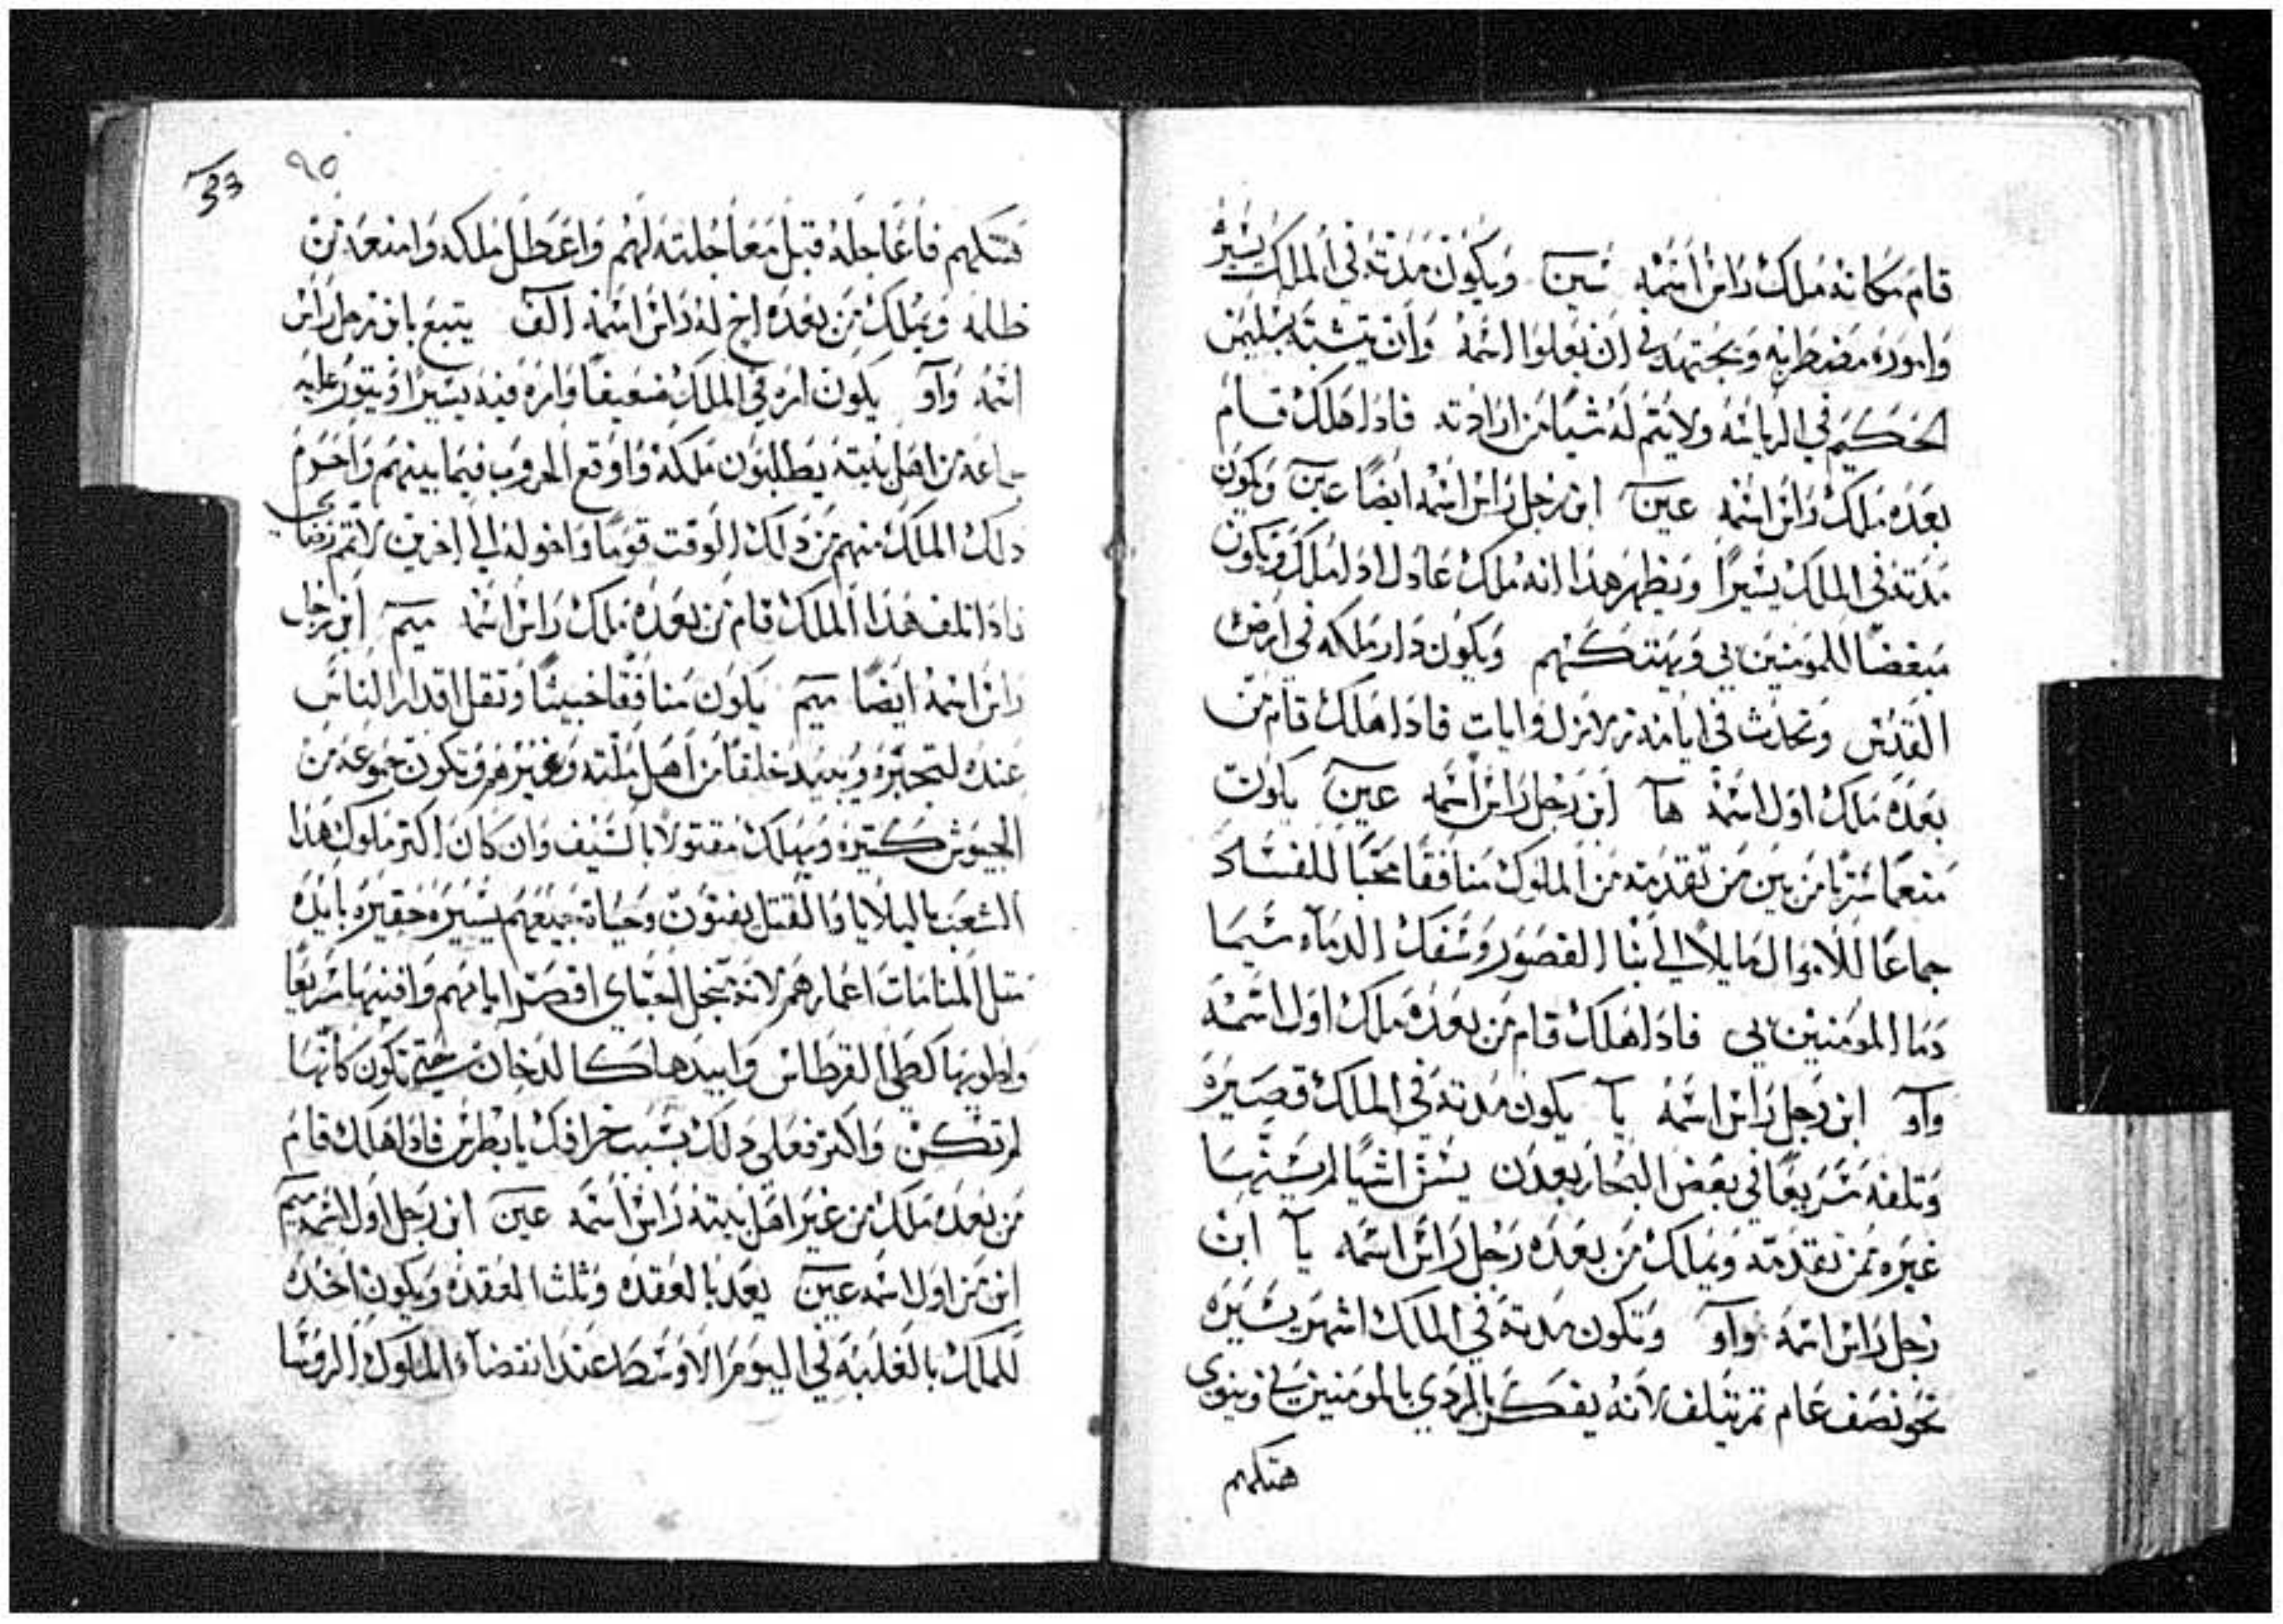 قام مكانه ملك راس اسمه سين ويكون مدته في الملك يسير
واموره مضطربه ويجتهد في ان يعلوا اسمه وان يتشبه بسليمن
الحكيم في الرياسه ولا يتم له شيا من ارادته فاذا هلك قام
بعده ملك راس اسمه عين ابن رجل راس اسمه ايضا عين ويكون
مدته في الملك يسيرا ويظهر هذا انه ملك عادل اذا ملك ويكون
مبغضا للمومنين بي ويهتكهم ويكون دار ملكه في ارض
القدس وتحدث في ايامه زلازل وايات فاذا هلك قام من
بعده ملك اول اسمه ها ابن رجل راس اسمه عين يكون
منعما من بين من تقدمه من الملوك منافقا محبا للفساد
جماعا للاموال مايلا الي بنا القصور وسفك الدماء سيما
دما المومنين بي فاذا هلك قام من بعده ملك اول اسمه
واو ابن رجل راس اسمه يا يكون مدته في الملك قصيره
وتلفه سريعا في بعض البحار بعدن يسن اشيا لم يسنها
غيره ممن تقدمه ويملك من بعده رجل راس اسمه يا ابن
رجل راس اسمه واو وتكون مدته في الملك اشهر يسيره
نحو نصف عام ثم يتلف لانه يفكر بالردي بالمومنين بي وينوي
هتكهم
٩٥
33
هتكهم فاعاجله قبل معاجلته لهم واعطل ملكه وامنعه من
ظلمه ويملك من بعده اخ له راس اسمه الف يتبع بابن رجل راس
اسمه واو يكون امره في الملك ضعيفا وامره فيه يسيرا ويثور عليه
جماعه من اهل بيته يطلبون ملكه واوقع الحروب فيما بينهم
دلك الملك منهم من دلك الوقت قوما واحوله الي اخرين
فاذا تلف هذا الملك قام من بعده ملك راس اسمه ميم ابن رجل
راس اسمه ايضا ميم يكون منافقا خبيثا وتقل اقدار الناس
عنده لتجبره ويبيد خلقا من اهل ملته وغيرهم وتكون جموعه من
الجيوش كثيره ويهلك مقتولا بالسيف وان كان اكثر ملوك هذا
الشعب بالبلايا والقتل يفنون وحياة جميعهم يسيره حقيره بايده
مثل المنامات اعمارهم لانه ايامهم وافنيها سريعا
واطويها كطي القرطاس وابيدها كالدخان حتى تكون كانها
لم تكن واكثر فعلي دلك بسبب خرافك يا بطرس فاذا هلك قام
من بعده ملك من غير اهل بيته راس اسمه عين ابن رجل اول اسمه ميم
ابن من اول اسمه عين يعد بالعقده وثلث العقده ويكون اخده
للملك بالغلبه في اليوم الاوسط عند انقضاء الملوك الروسا